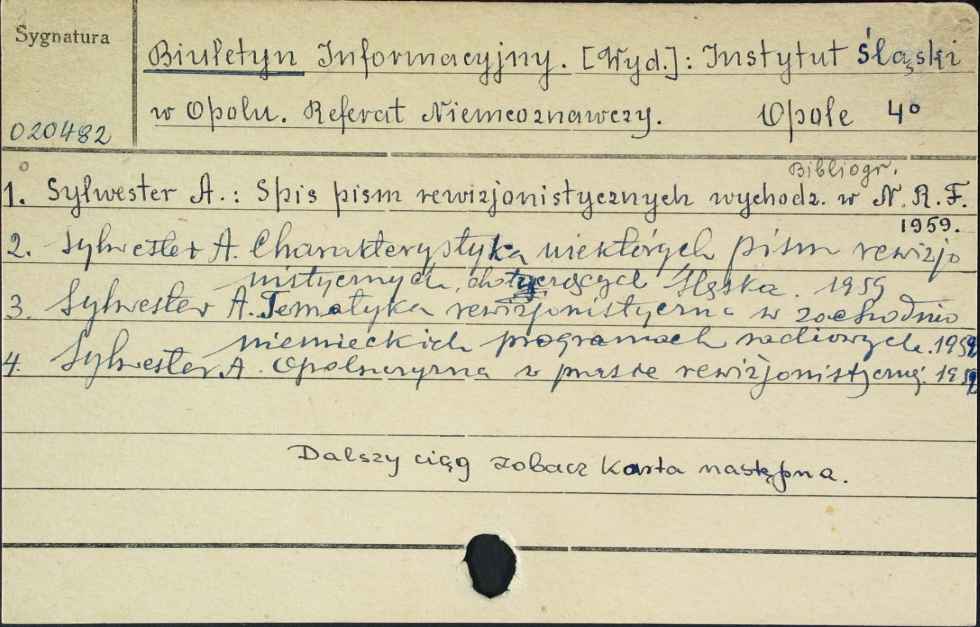 Sygnatura
Biuletyn Informacyjny. [Wyd.]: Instytut Śląski
w Opolu. Referat Niemcoznawczy. Opole 4°
020482
Bibliogr.
1. Sylwester A.: Spis pism rewizjonistycznych wychodz. w N.R.F.
1959.
2. Sylwester A. Charakterystyka niektórych pism rewizjo
nistycznych, dotyczących Śląska. 1959
3. Sylwester A. Tematyka rewizjonistyczna w zachodnio
niemieckich programach radiowych. 1959
4. Sylwester A. Opolszczyzna w prasie rewizjonistycznej. 1959
Dalszy ciąg zobacz karta następna.